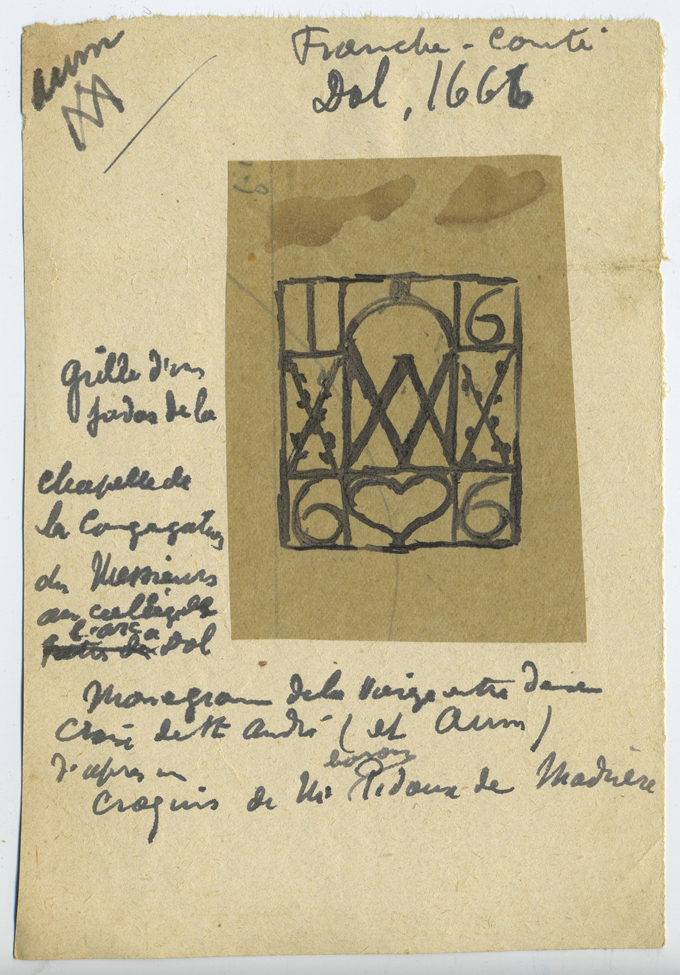 aum
Franche-Comté
Dol, 1666
1 6
6 6
Grille d'un
de la
chapelle de
la Congregation
des Messieurs
au college de
l'arc a
Dol
Monogramme de la Vierge entre deux
Croix de St André (et aum)
d'apres un
baron
croquis de Mr Pidoux de Madrière